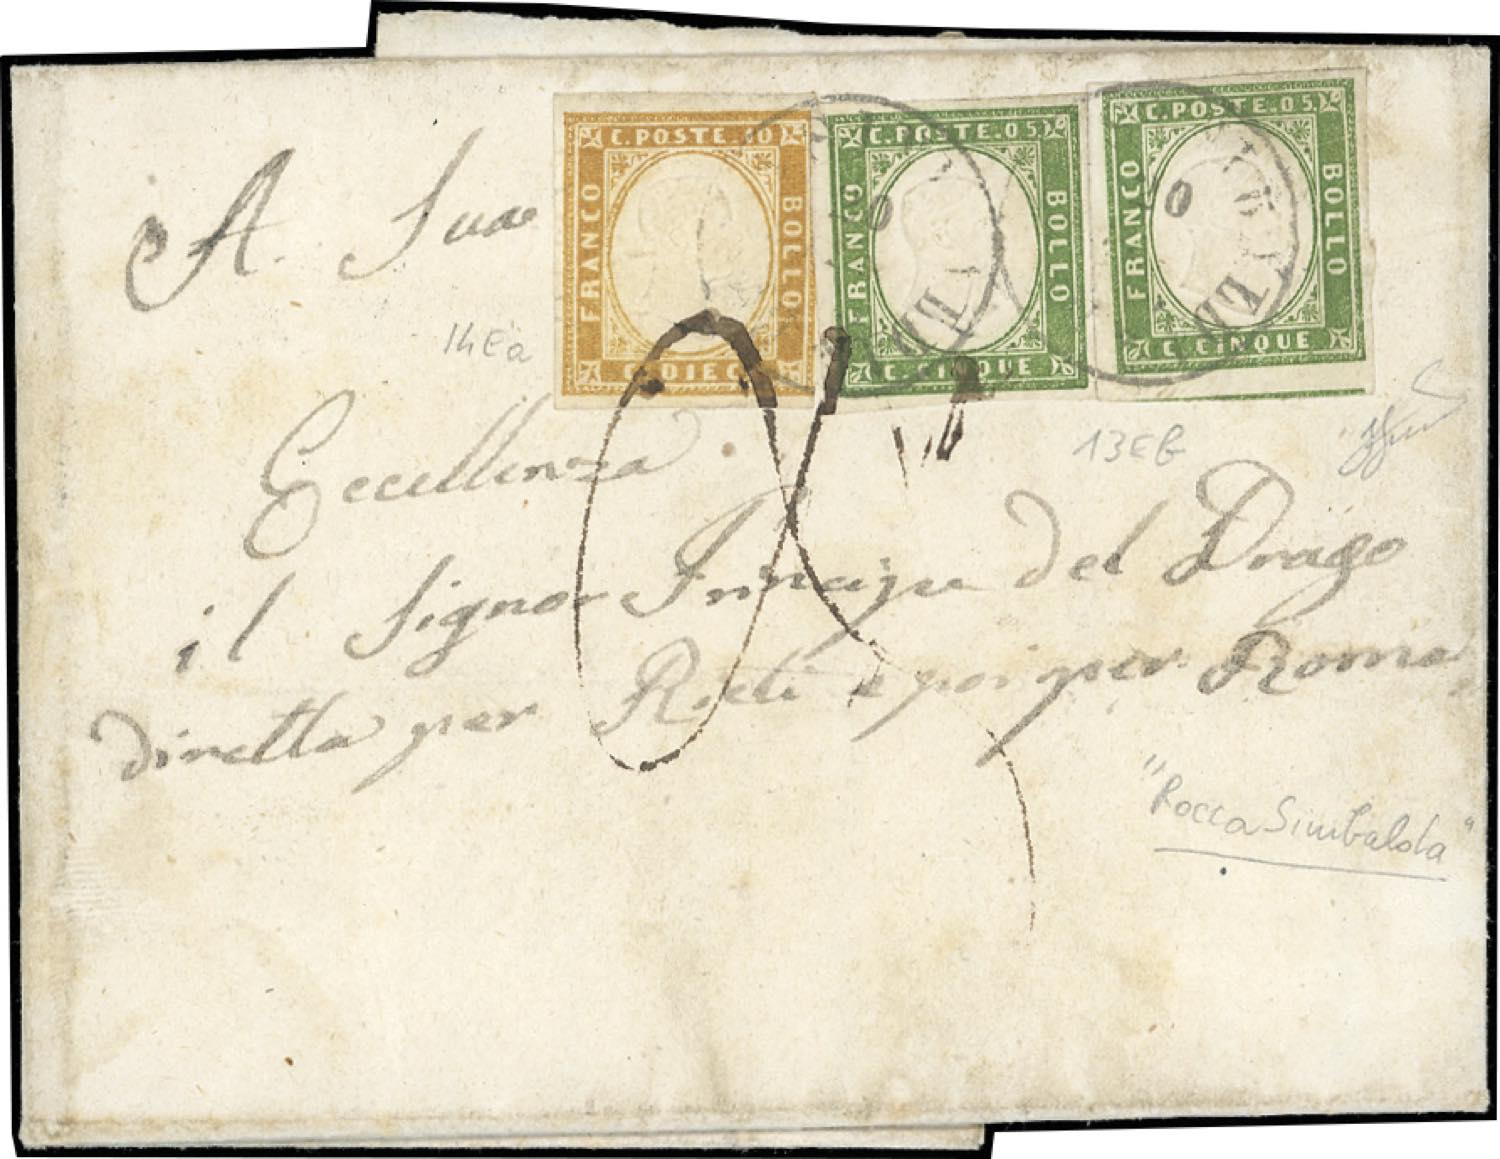 C. POSTE. 10
FRANCO
BOLLO
C. DIECI
C. POSTE. 05
FRANCO
BOLLO
C. CINQUE
C. POSTE. 05
FRANCO
BOLLO
C. CINQUE
A. Sua
14Ea
13Eb
Eccellenza
il Signor Principe del Drago
diretta per Rieti e poi per Roma
"Rocca Simbalda"